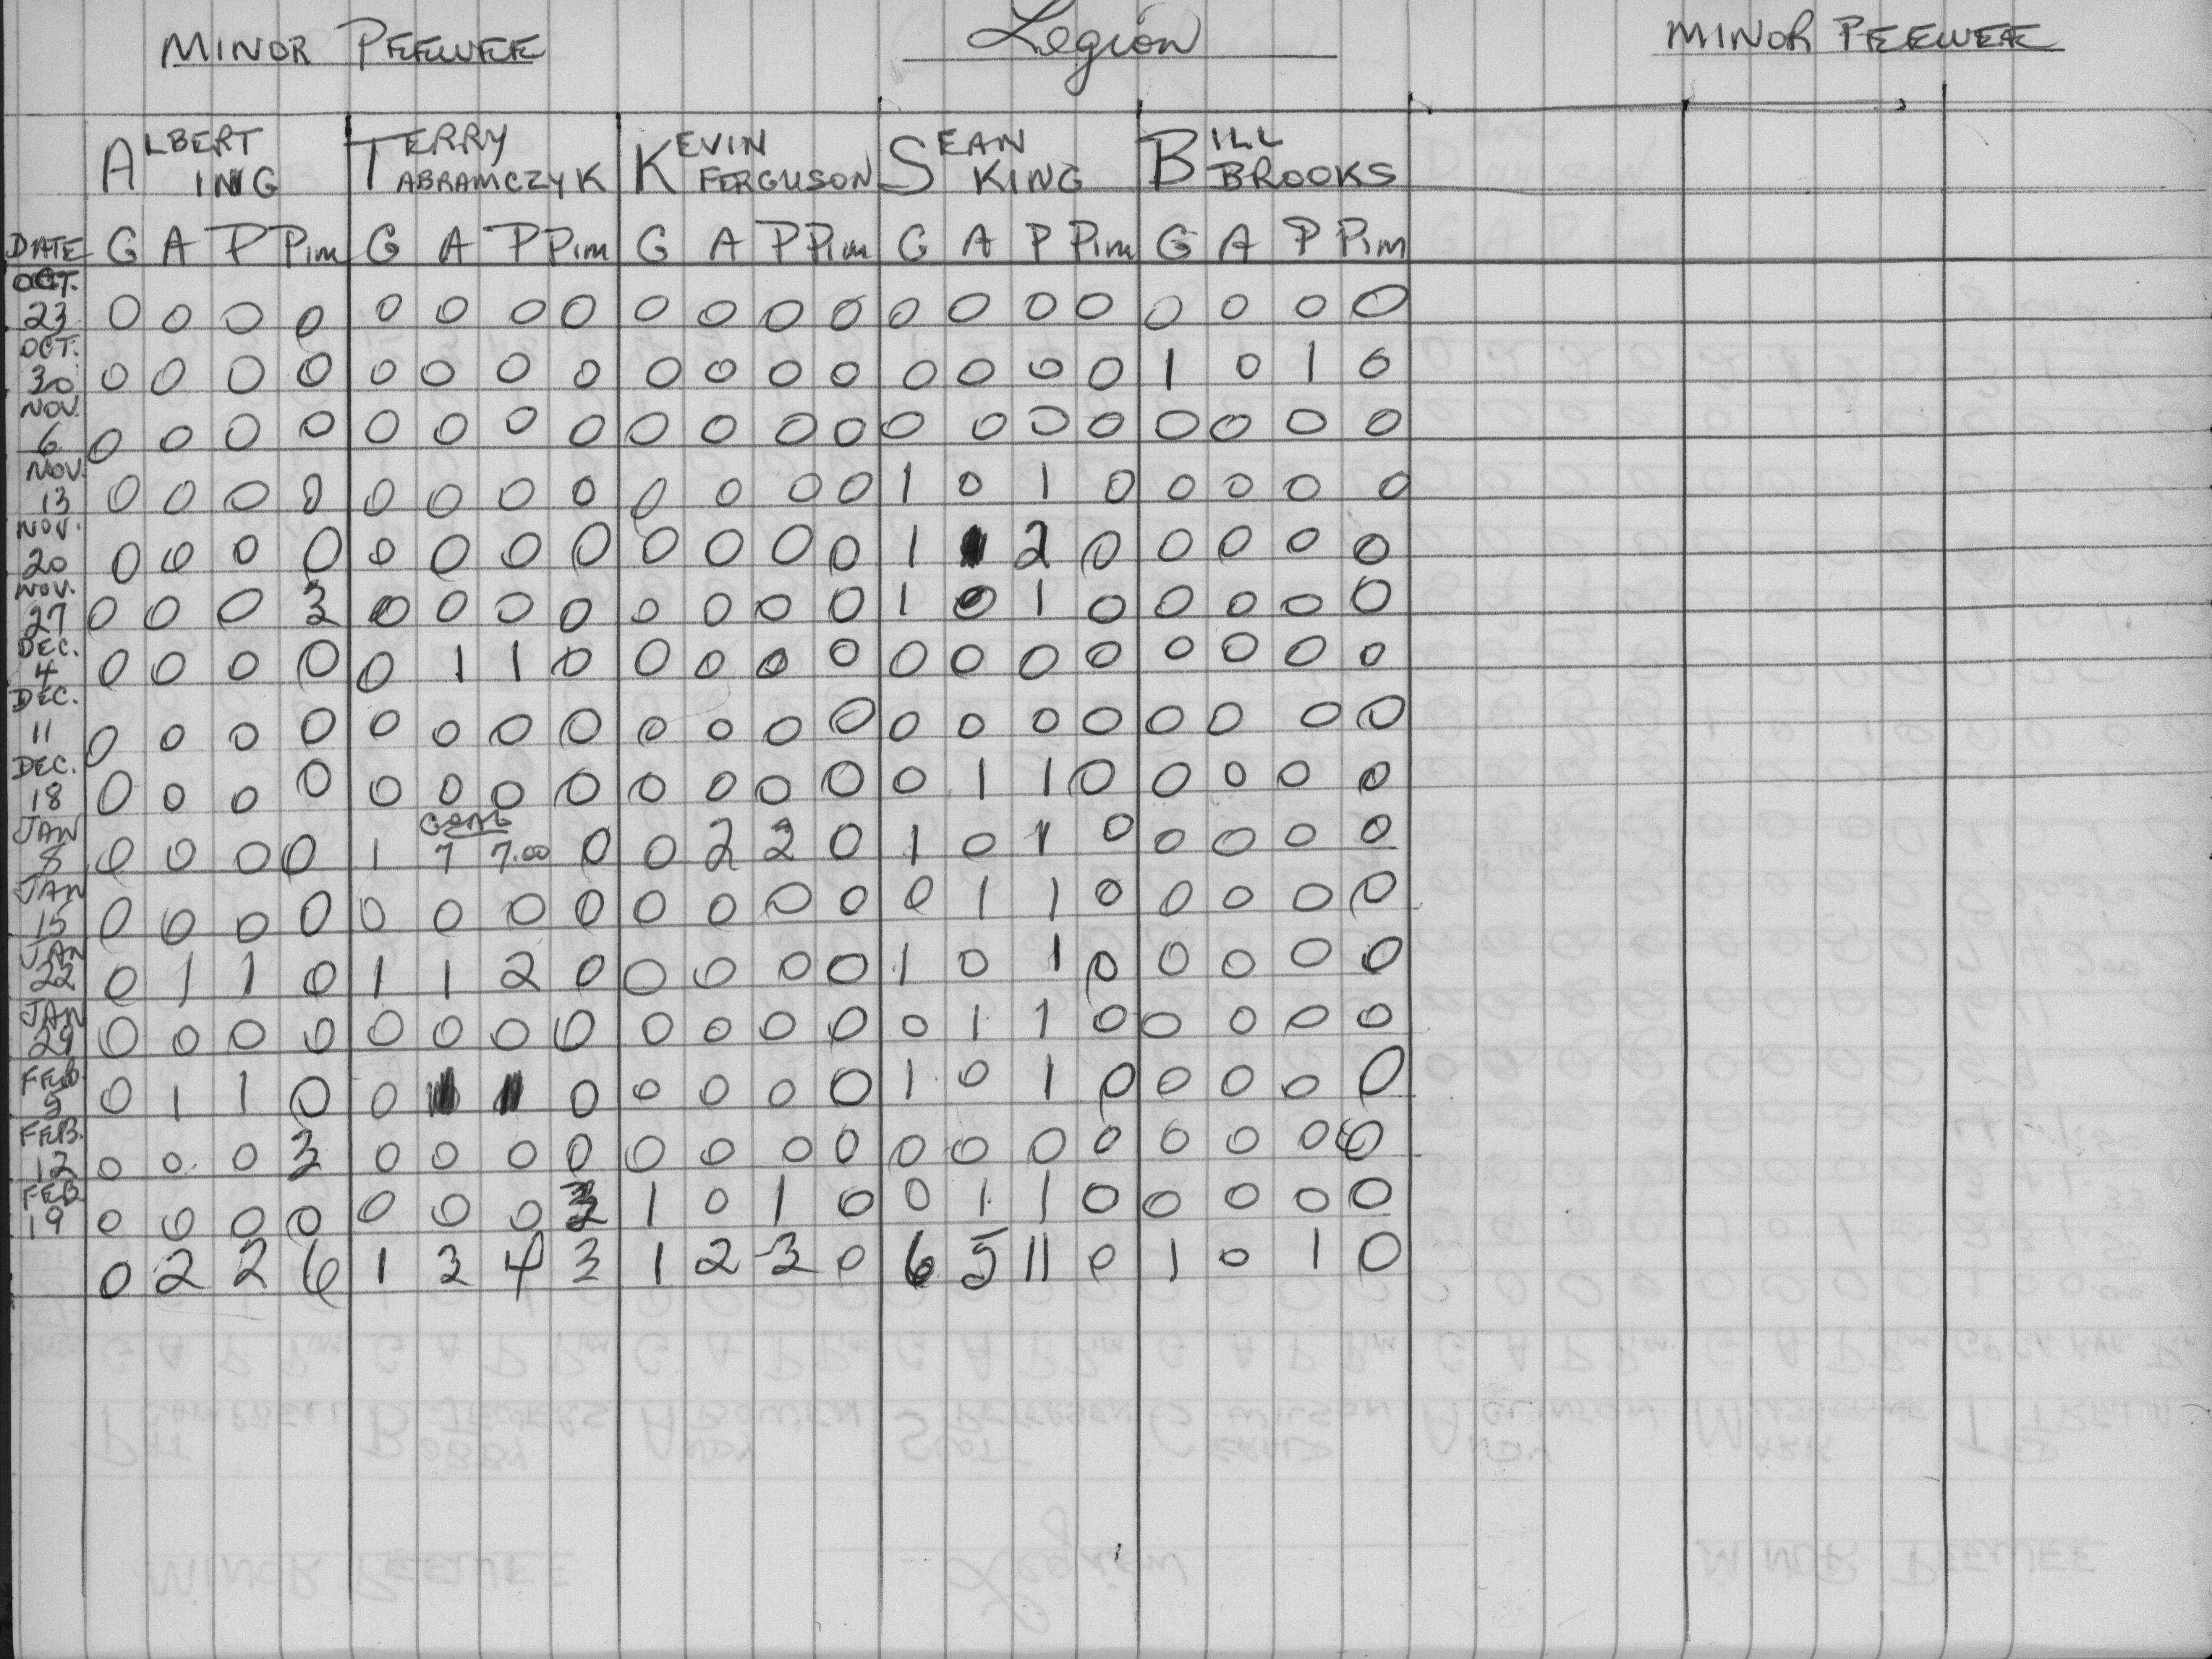 MINOR PEEWEE Legion MINOR PEEWEE
ALBERT ING TERRY ABRAMCZYK KEVIN FERGUSON SEAN KING BILL BROOKS
DATE G A P Pim G A P Pim G A P Pim G A P Pim G A P Pim
OCT. 23 0 0 0 0 0 0 0 0 0 0 0 0 0 0 0 0 0 0 0 0
OCT. 30 0 0 0 0 0 0 0 0 0 0 0 0 0 0 0 0 1 0 1 0
NOV. 6 0 0 0 0 0 0 0 0 0 0 0 0 0 0 0 0 0 0 0 0
NOV. 13 0 0 0 0 0 0 0 0 0 0 0 0 1 0 1 0 0 0 0 0
NOV. 20 0 0 0 0 0 0 0 0 0 0 0 0 1 1 2 0 0 0 0 0
NOV. 27 0 0 0 3 0 0 0 0 0 0 0 0 1 0 1 0 0 0 0 0
DEC. 4 0 0 0 0 0 1 1 0 0 0 0 0 0 0 0 0 0 0 0 0
DEC. 11 0 0 0 0 0 0 0 0 0 0 0 0 0 0 0 0 0 0 0 0
DEC. 18 0 0 0 0 0 0 0 0 0 0 0 0 0 1 1 0 0 0 0 0
GOAL
JAN 8 0 0 0 0 1 7 7.00 0 0 2 2 0 1 0 1 0 0 0 0 0
JAN 15 0 0 0 0 0 0 0 0 0 0 0 0 0 1 1 0 0 0 0 0
JAN 22 0 1 1 0 1 1 2 0 0 0 0 0 1 0 1 0 0 0 0 0
JAN 29 0 0 0 0 0 0 0 0 0 0 0 0 0 1 1 0 0 0 0 0
FEB. 5 0 1 1 0 0 1 1 0 0 0 0 0 1 0 1 0 0 0 0 0
FEB. 12 0 0 0 3 0 0 0 0 0 0 0 0 0 0 0 0 0 0 0 0
FEB 19 0 0 0 0 0 0 0 3 1 0 1 0 0 1 1 0 0 0 0 0
0 2 2 6 1 3 4 3 1 2 3 0 6 5 11 0 1 0 1 0